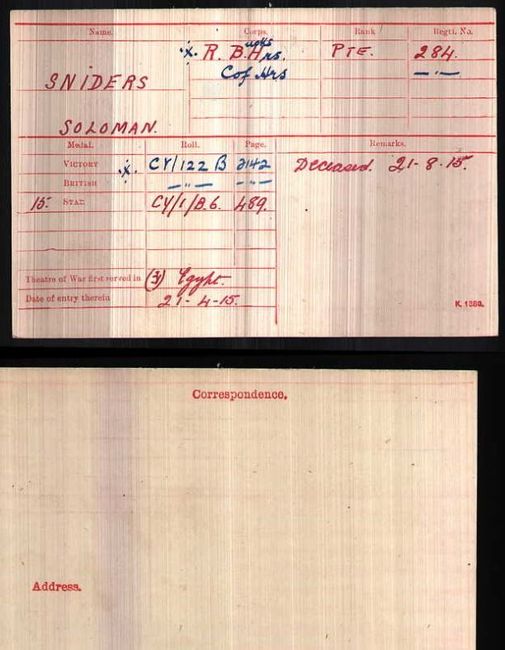 Name. Corps. Rank Regtl. No.
·x. R. Bucks Hrs. PTE. 284.
C of Hrs — " —
SNIDERS
SOLOMAN.
Medal. Roll. Page. Remarks.
VICTORY ·x. CY/122 B 2142 Deceased. 21-8-15.
BRITISH — " — — " —
15. STAR CY/1/B.6. 489.
Theatre of War first served in (3) Egypt.
Date of entry therein 21-4-15.
K. 1380.
Correspondence.
Address.